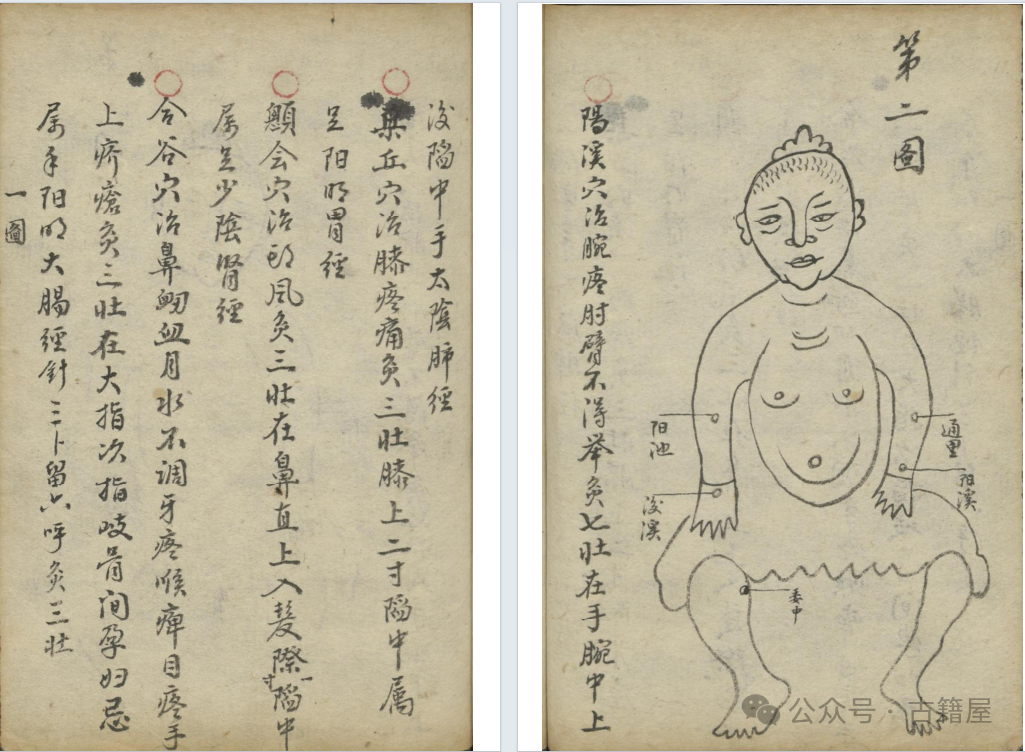 後陷中手太陰肺經
梁丘穴治膝疼痛灸三壯膝上二寸陷中属
足阳明胃經
顖会穴治頭风灸三壯在鼻直上入髮際一寸陷中
属足少陰腎經
合谷穴治鼻衂血月水不调牙疼喉痺目疼手
上疥瘡灸三壯在大指次指岐骨间孕妇忌
属手阳明大腸經針三卜留六呼灸三壯
一圖
第二圖
通里
阳溪
阳池
後溪
委中
陽溪穴治腕疼肘臂不得举灸七壯在手腕中上
公众号·古籍屋